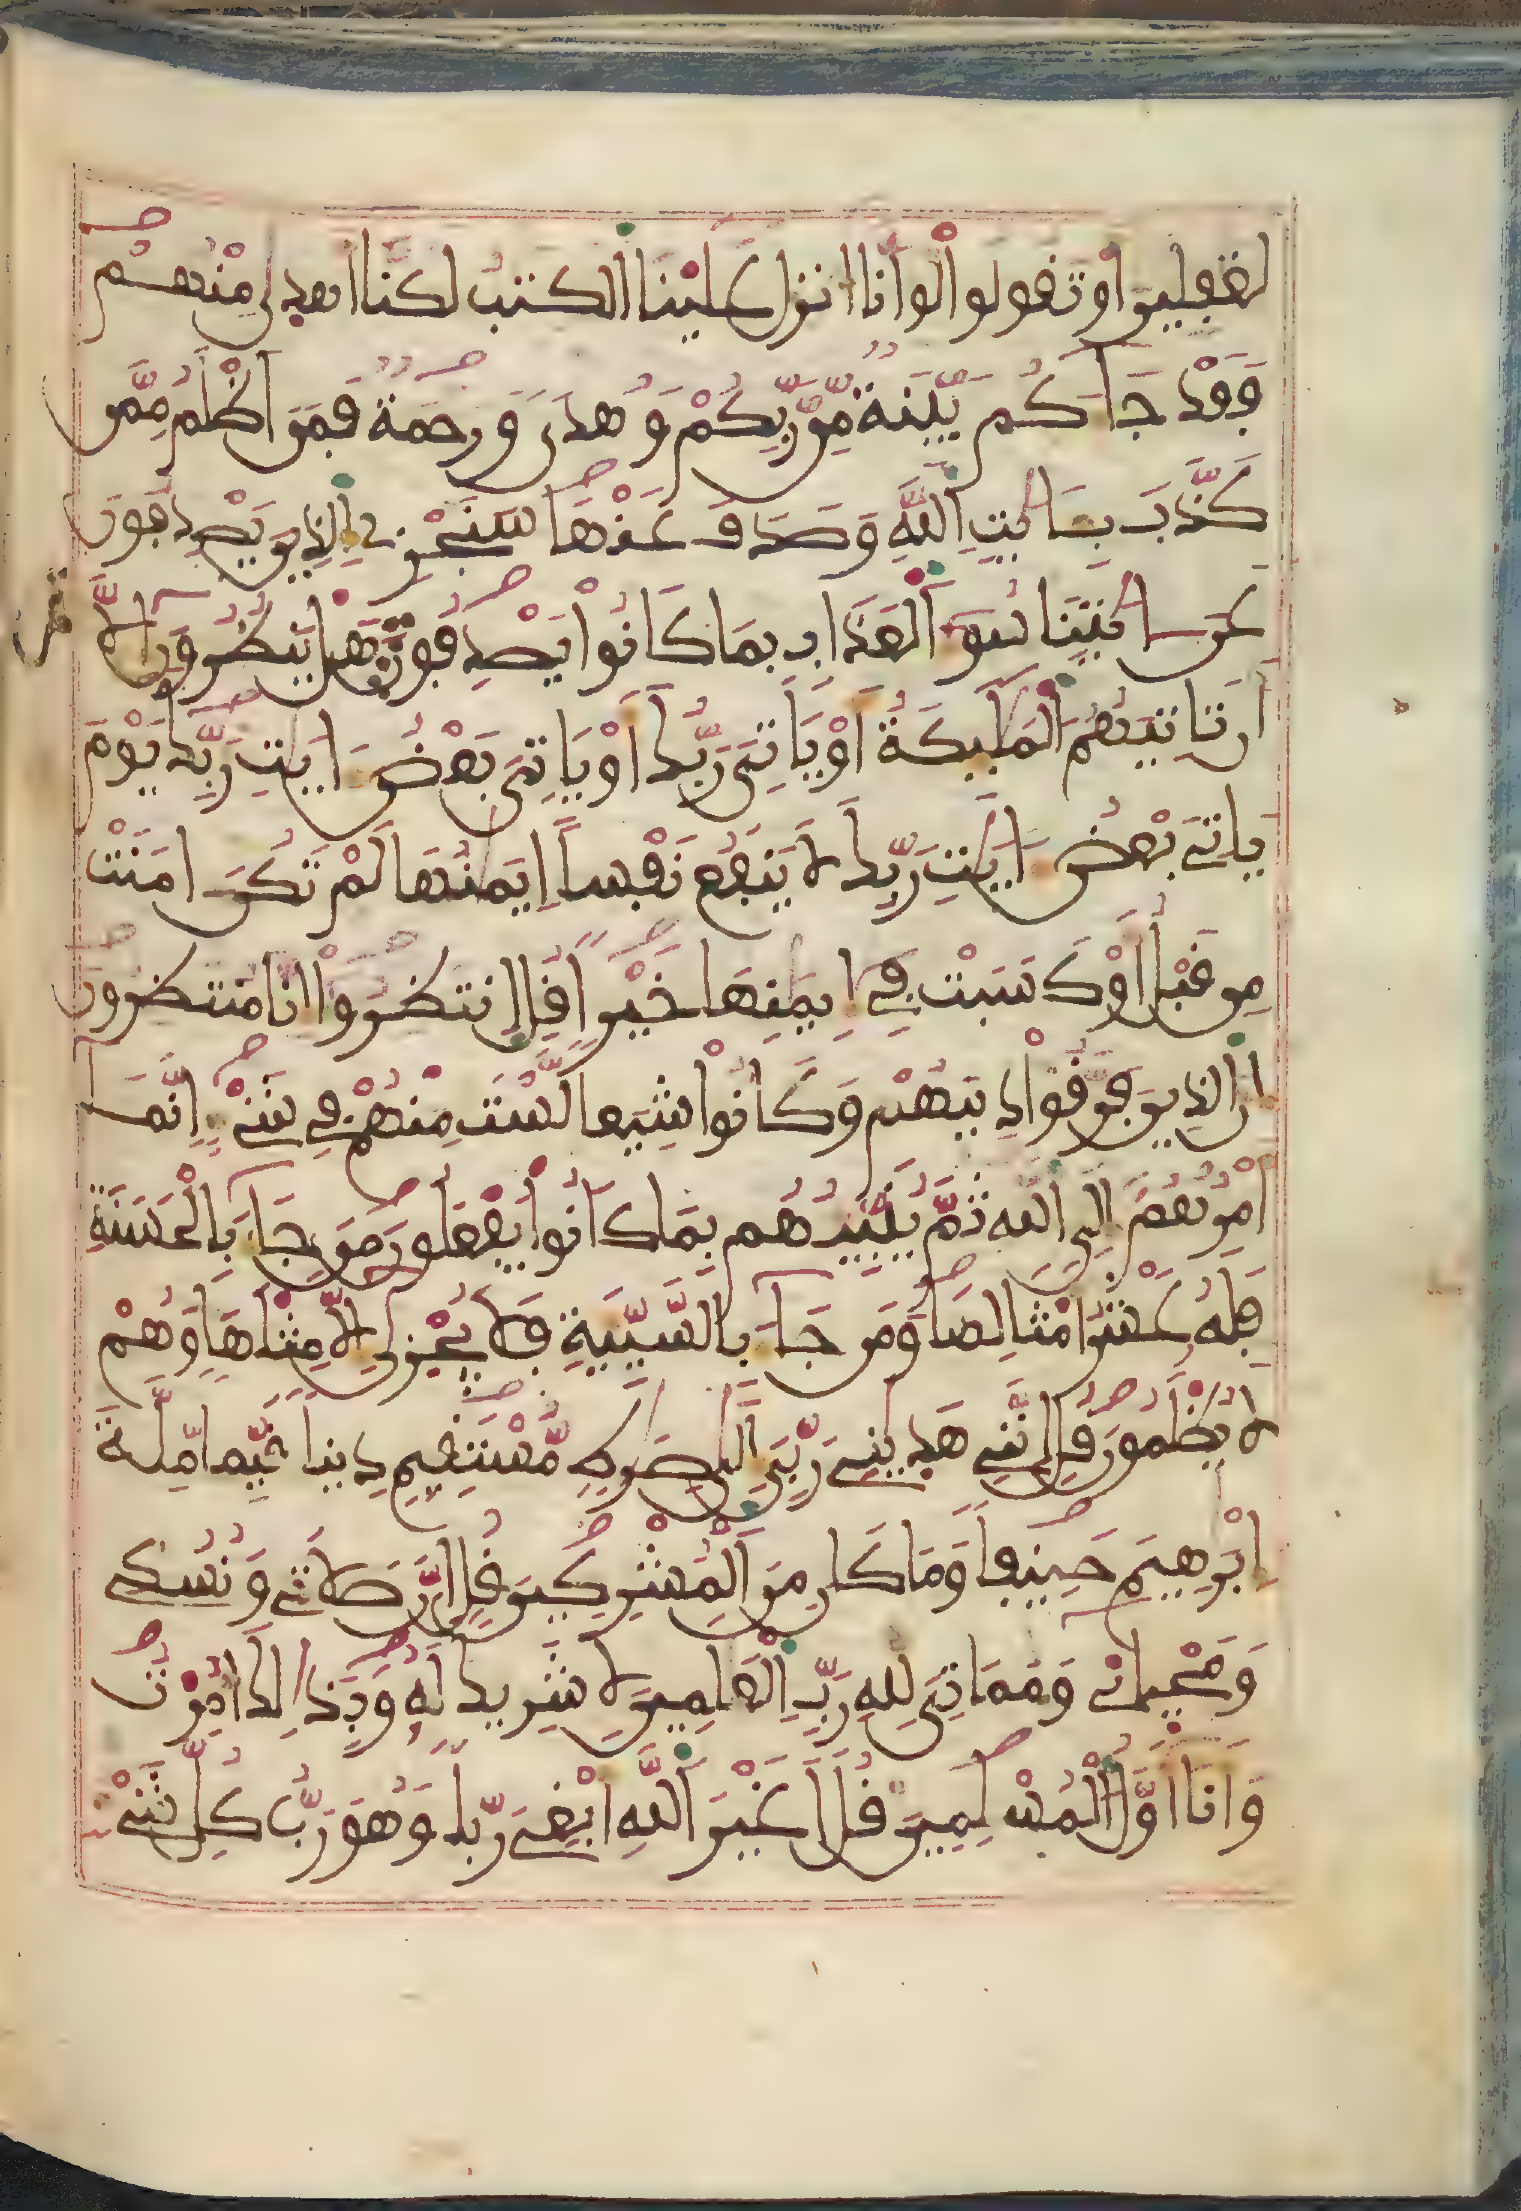 لغفلين او تقولوا لو انا انزل علينا الكتب لكنا اهدى منهم
فَقَدْ جَاكُم بَيِّنَةٌ مِّن رَّبِّكُمْ وَهُدًى وَرَحْمَةٌ فَمَنَ اَظْلَمُ مِمَّن
كَذَّبَ بِـَٔايَٰتِ اِ۬للَّهِ وَصَدَفَ عَنْهَا سَنَجْزِے اِ۬لذِينَ يَصْدِفُونَ
عَنَ ايَٰتِنَا سُوٓءَ اَ۬لْعَذَابِ بِمَا كَانُوا يَصْدِفُونَ هَلْ يَنظُرُونَ إِلَّا
أَن تَاتِيَهُمُ الْمَلَٰٓئِكَةُ أَوْ يَاتِيَ رَبُّكَ أَوْ يَاتِيَ بَعْضُ ءَايَٰتِ رَبِّكَ يَوْمَ
يَاتِے بَعْضُ ءَايَٰتِ رَبِّكَ لَا يَنفَعُ نَفْساً اِيمَٰنُهَا لَمْ تَكُنَ اٰمَنَتْ
مِن قَبْلُ أَوْ كَسَبَتْ فِے إِيمَٰنِهَا خَيْراً قُلِ اِنتَظِرُوا إِنَّا مُنتَظِرُونَ
إِنَّ الذِينَ فَرَّقُوا دِينَهُمْ وَكَانُوا شِيَعاً لَّسْتَ مِنْهُمْ فِے شَےْءٍ اِنَّمَآ
أَمْرُهُمُ إِلَى اللَّهِ ثُمَّ يُنَبِّئُهُم بِمَا كَانُوا يَفْعَلُونَ مَن جَآءَ بِالْحَسَنَةِ
فَلَهُ عَشْرُ أَمْثَالِهَا وَمَن جَآءَ بِالسَّيِّئَةِ فَلَا يُجْزَىٰ إِلَّا مِثْلَهَا وَهُمْ
لَا يُظْلَمُونَ قُلِ اِنَّنِے هَدَيٰنِے رَبِّيَ إِلَىٰ صِرَٰطٍ مُّسْتَقِيمٍ دِيناً قَيِّماً مِّلَّةَ
إِبْرَٰهِيمَ حَنِيفاً وَمَا كَانَ مِنَ اَ۬لْمُشْرِكِينَ قُلِ اِنَّ صَلَاتِے وَنُسُكِے
وَمَحْيَاےْ وَمَمَاتِيَ لِلهِ رَبِّ اِ۬لْعَٰلَمِينَ لَا شَرِيكَ لَهُ وَبِذَٰلِكَ أُمِرْتُ
وَأَنَآ أَوَّلُ اُ۬لْمُسْلِمِينَ قُلَ اَغَيْرَ اَ۬للَّهِ أَبْغِے رَبّاً وَهُوَ رَبُّ كُلِّ شَےْءٍ